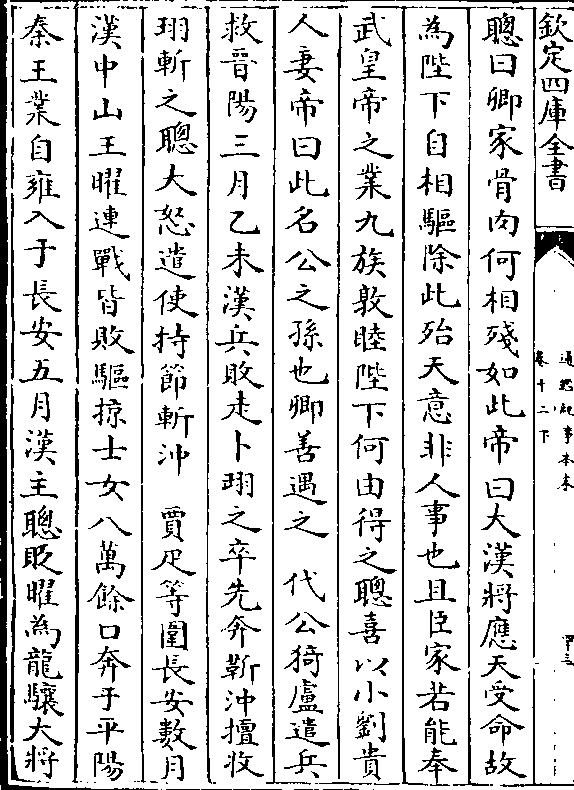 欽定四庫全書
通鑑紀事本末
卷十二下
聰曰卿家骨肉何相殘如此帝曰大漢將應天受命故
為陛下自相驅除此殆天意非人事也且臣家若能奉
武皇帝之業九族敦睦陛下何由得之聰喜以小劉貴
人妻帝曰此名公之孫也卿善遇之 代公猗盧遣兵
救晉陽三月乙未漢兵敗走卜珝之卒先奔靳沖擅收
珝斬之聰大怒遣使持節斬沖 賈疋等圍長安數月
漢中山王曜連戰皆敗驅掠士女八萬餘口奔于平陽
秦王業自雍入于長安五月漢主聰貶曜為龍驤大將